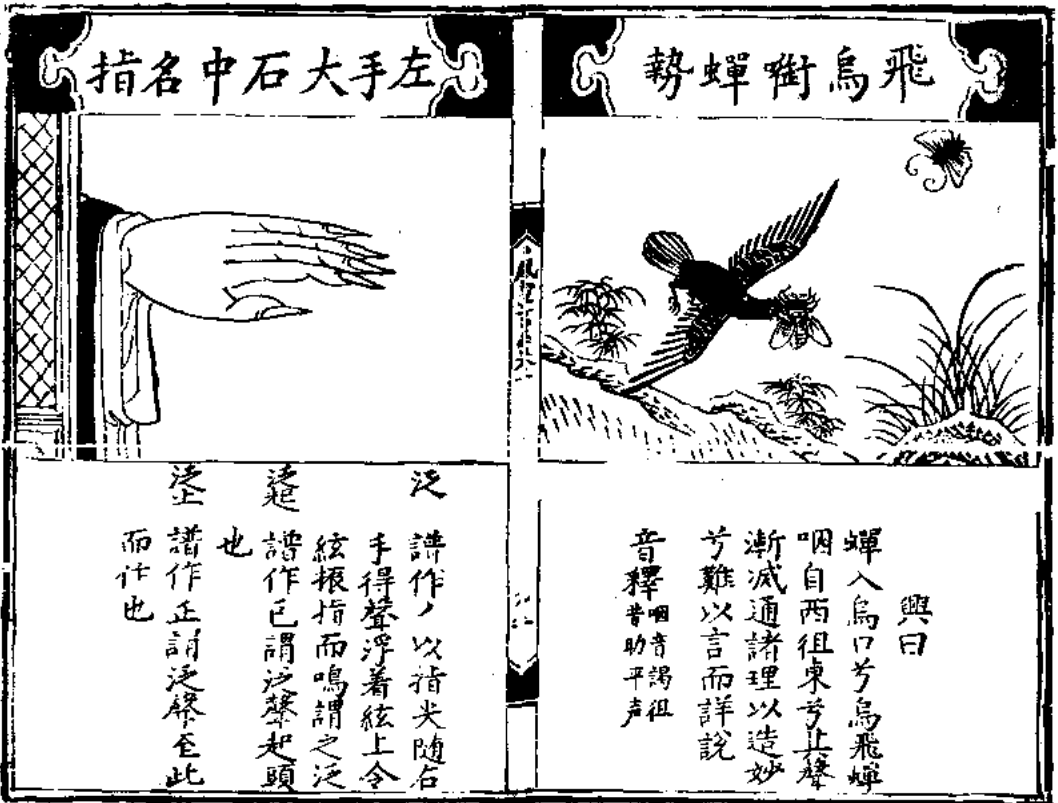 飛鳥啣蟬勢
興曰
蟬入鳥口兮鳥飛蟬
咽自西徂東兮其聲
漸減通諸理以造妙
兮難以言而詳說
音釋咽音謁徂
昔助平声
左手大石中名指
泛
譜作以指尖随右
手得聲浮着絃上令
絃振指而鳴謂之泛
泛起
譜作巳謂泛聲起頭
也
泛止
譜作正謂泛聲至此
而作也